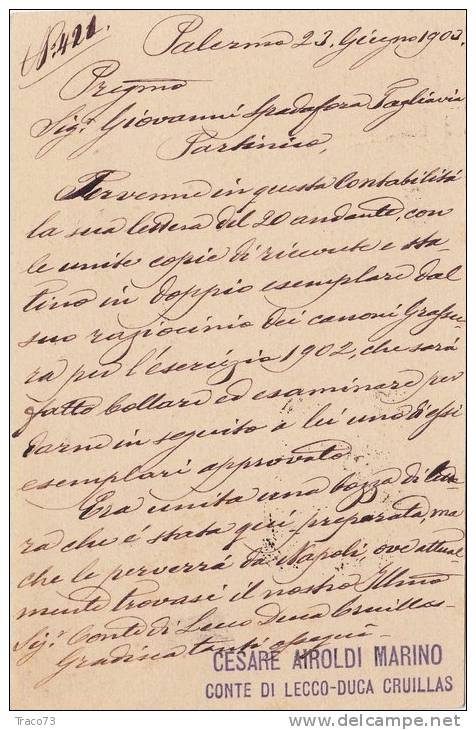 N. 421.
Palermo 23. Giugno 1903
Pregmo
Sig.r Giovanni Spadafora Tagliavia
Partinico,
Pervenne in questa Contabilità
la sua lettera del 20 andante, con
le unite copie di ricevute e sta-
tino in doppio esemplare dal
suo raziocinio dei canoni Grassu-
ra per l'esercizio 1902, che sarà
fatto bollare ed esaminare per
darne in seguito a lei uno di essi
esemplari approvato.
Era unita una bozza di
ra che è stata qui preparata, ma
che le perverrà da Napoli, ove attual-
mente trovasi il nostro Illmo
Sig.r Conte di Lecco Duca Cruillas-
Gradisca tanti ossequi-
CESARE AIROLDI MARINO
CONTE DI LECCO-DUCA CRUILLAS
Traco73